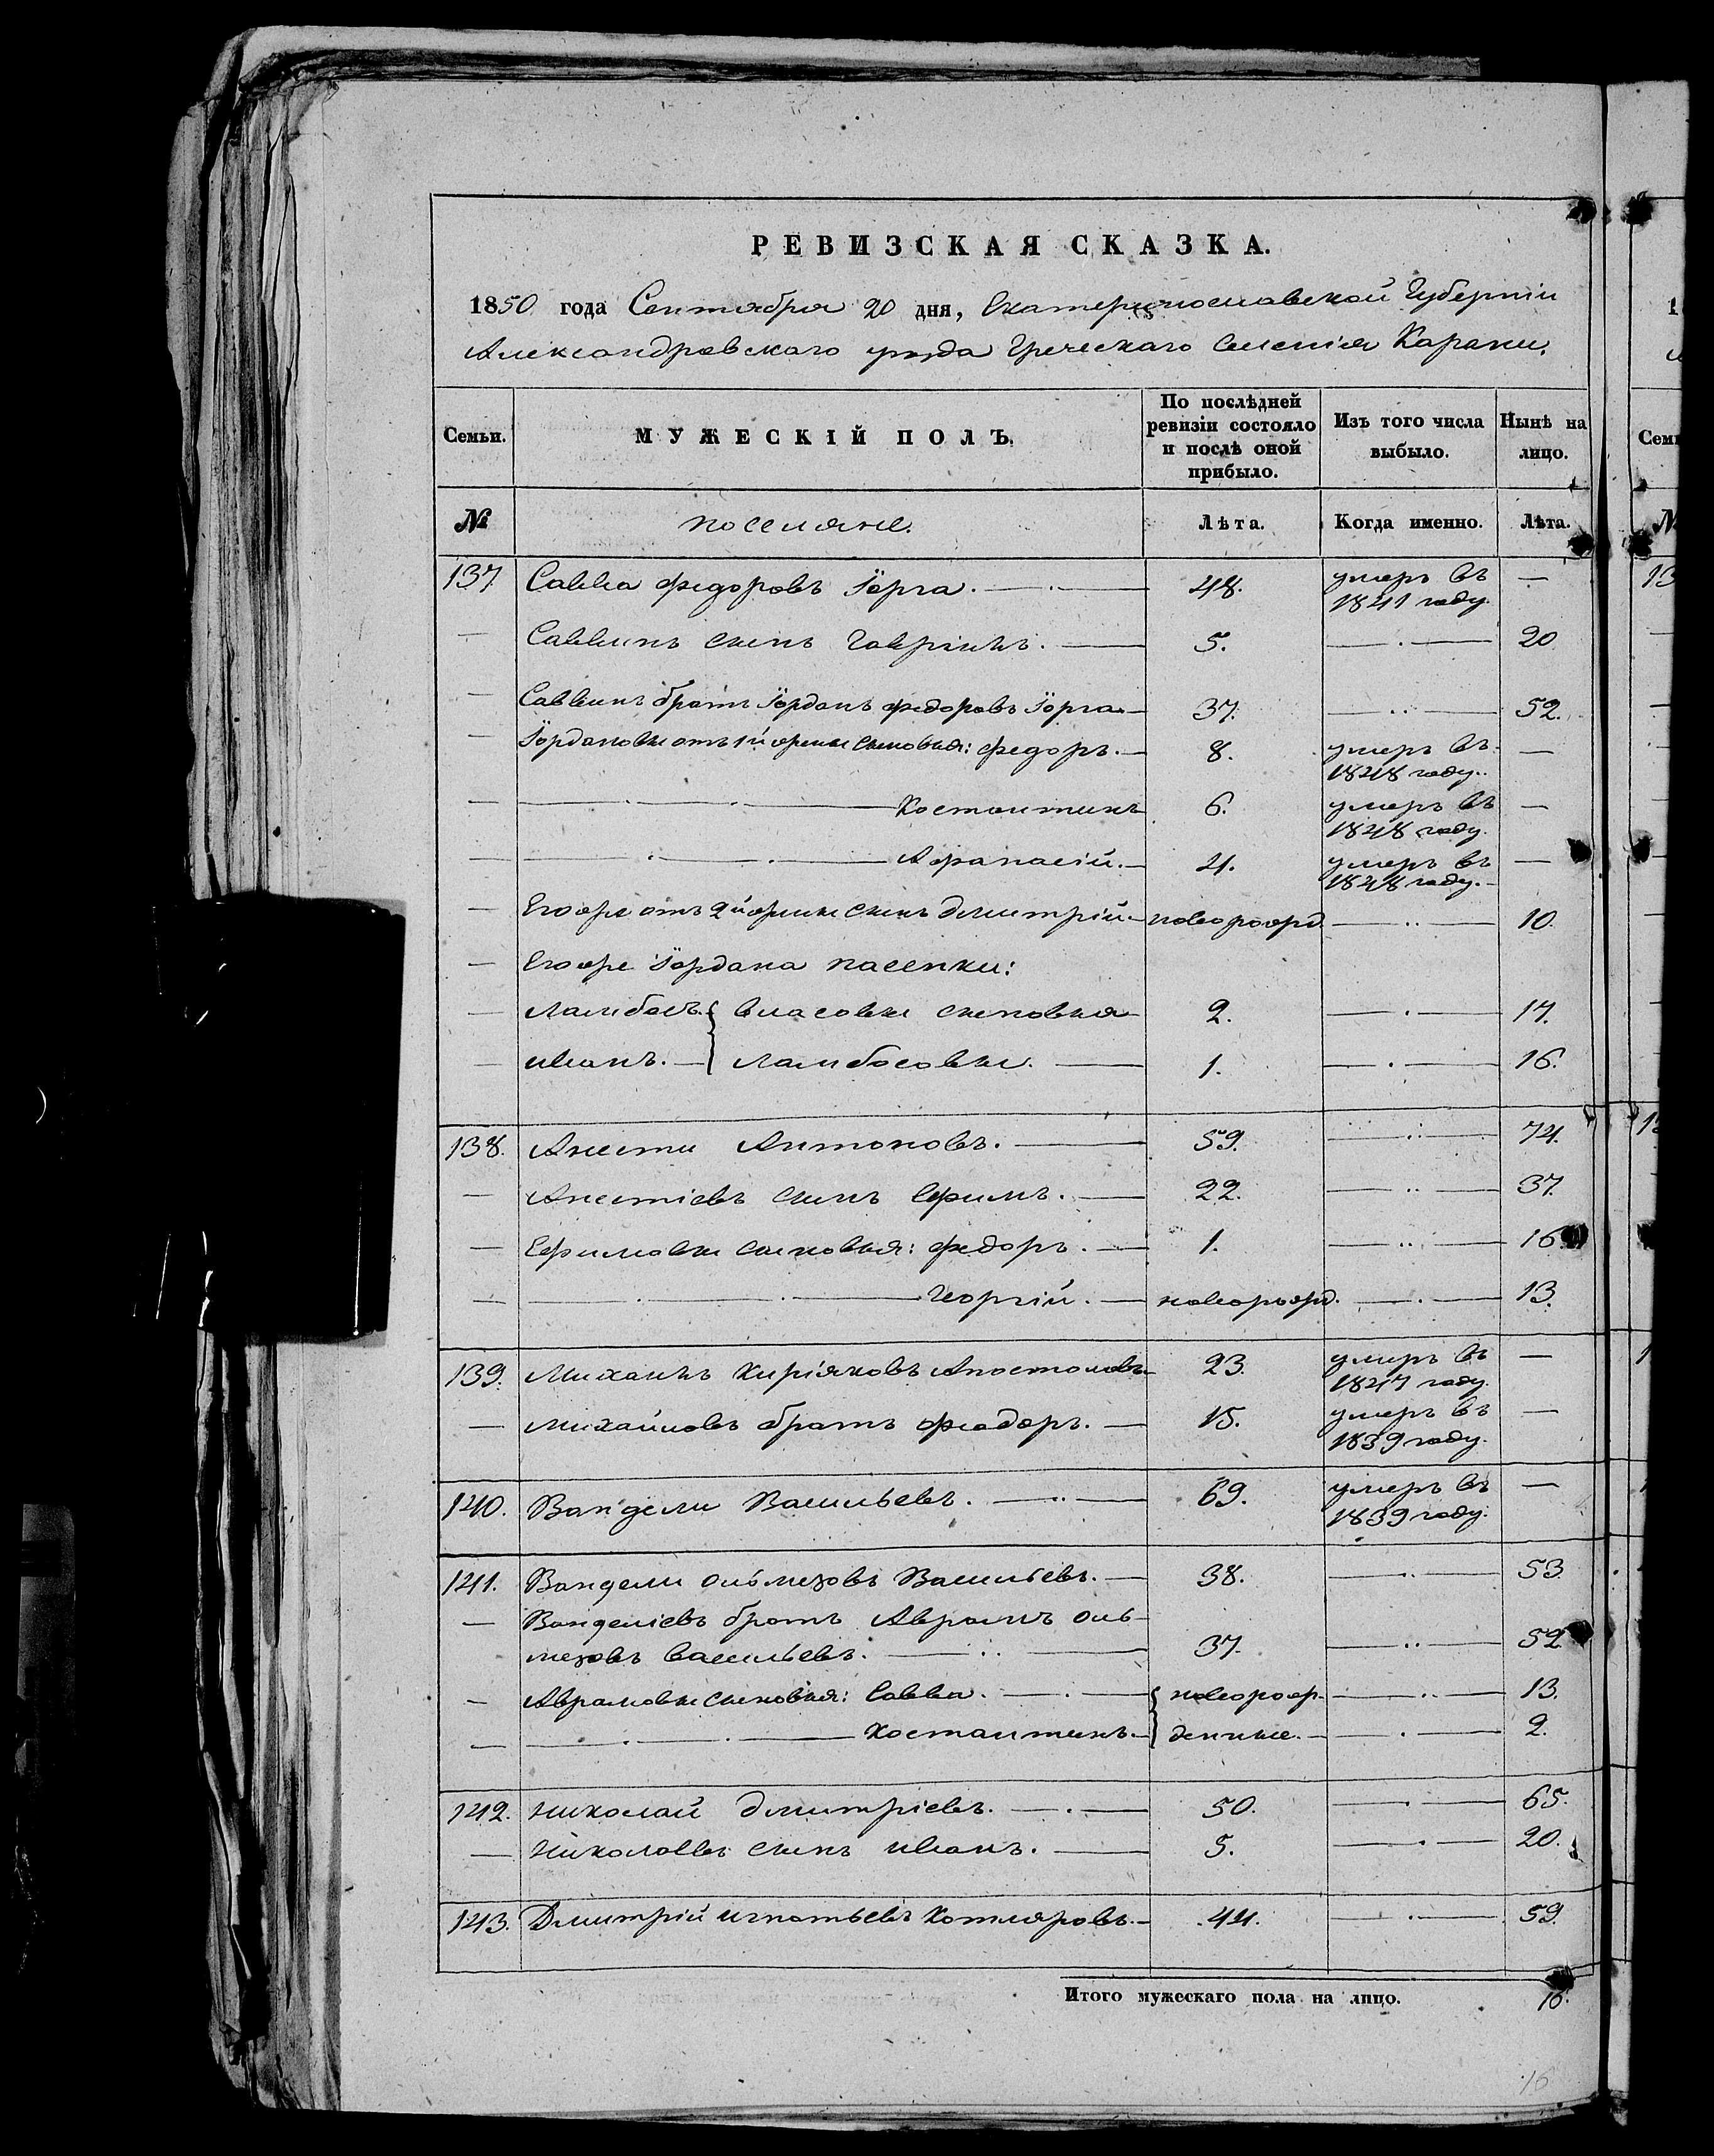 РЕВИЗСКАЯ СКАЗКА.
1850 года Сентября 20 дня, Екатеринославской Губерніи
Александровскаго уезда Греческаго Селенія Карани.
Семьи.
МУЖЕСКІЙ ПОЛЪ.
По послѣдней ревизіи состояло и послѣ оной прибыло.
Изъ того числа выбыло.
Нынѣ на лицо.
№ поселяне. Лѣта. Когда именно. Лѣта.
137 Савва Федоровъ Іорга. 48. умеръ въ 1841 году. —
— Саввинъ сынъ Гавріилъ. 5. — 20
— Саввинъ братъ Іорданъ Федоровъ Іорга 37. — 52.
— Іордановы отъ 1й жены сыновья: Федоръ. 8. умеръ въ 1848 году. —
— Костантинъ 6. умеръ въ 1848 году. —
— Афанасій. 4. умеръ въ 1848 году. —
— Егоже отъ 2й жены сынъ Дмитрій новорожд. — 10.
— Егоже Іордана пасенки:
— Ламбосъ { Власовы сыновья 2. — 17.
— Иванъ. { Ламбосовы. 1. — 16.
138. Анести Антоновъ. 59. — 74.
— Анестіевъ сынъ Ефимъ. 22. — 37.
— Ефимовы сыновья: Федоръ. 1. — 16
— Георгій. новорожд. — 13.
139. Михаилъ Киріяковъ Апостоловъ 23. умеръ въ 1847 году. —
— Михайловъ братъ Феодоръ. 15. умеръ въ 1839 году. —
140. Вангели Васильевъ. 69. умеръ въ 1839 году. —
141. Вангели Ольмезовъ Васильевъ. 38. — 53
— Вангеліевъ братъ Аврамъ Оль-
мезовъ Васильевъ. 37. — 52
— Аврамовы сыновья: Савва. { новорож- — 13.
— Костантинъ. { денные. — 2.
142. Николай Дмитріевъ. 50. — 65.
— Николаевъ сынъ Иванъ. 5. — 20.
143. Дмитрій Игнатьевъ Котляровъ. 44. — 59.
Итого мужескаго пола на лицо. 16.
16